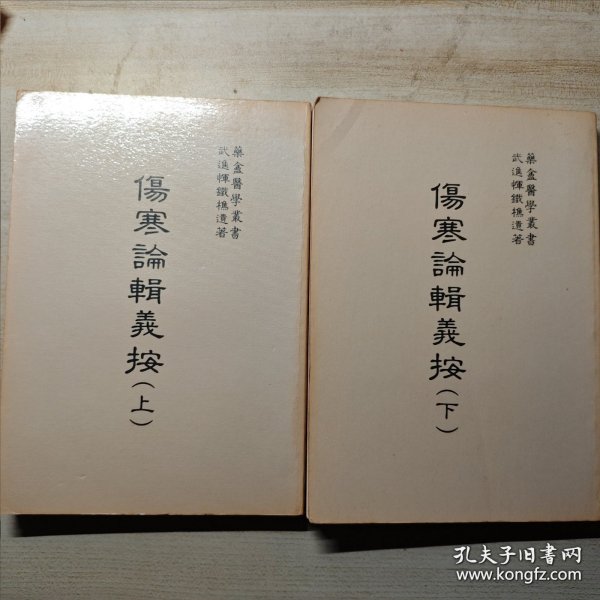 藥盦醫學叢書
武進惲鐵樵遺著
傷寒論輯義按(上)
藥盦醫學叢書
武進惲鐵樵遺著
傷寒論輯義按(下)
孔夫子旧书网
www.kongfz.com